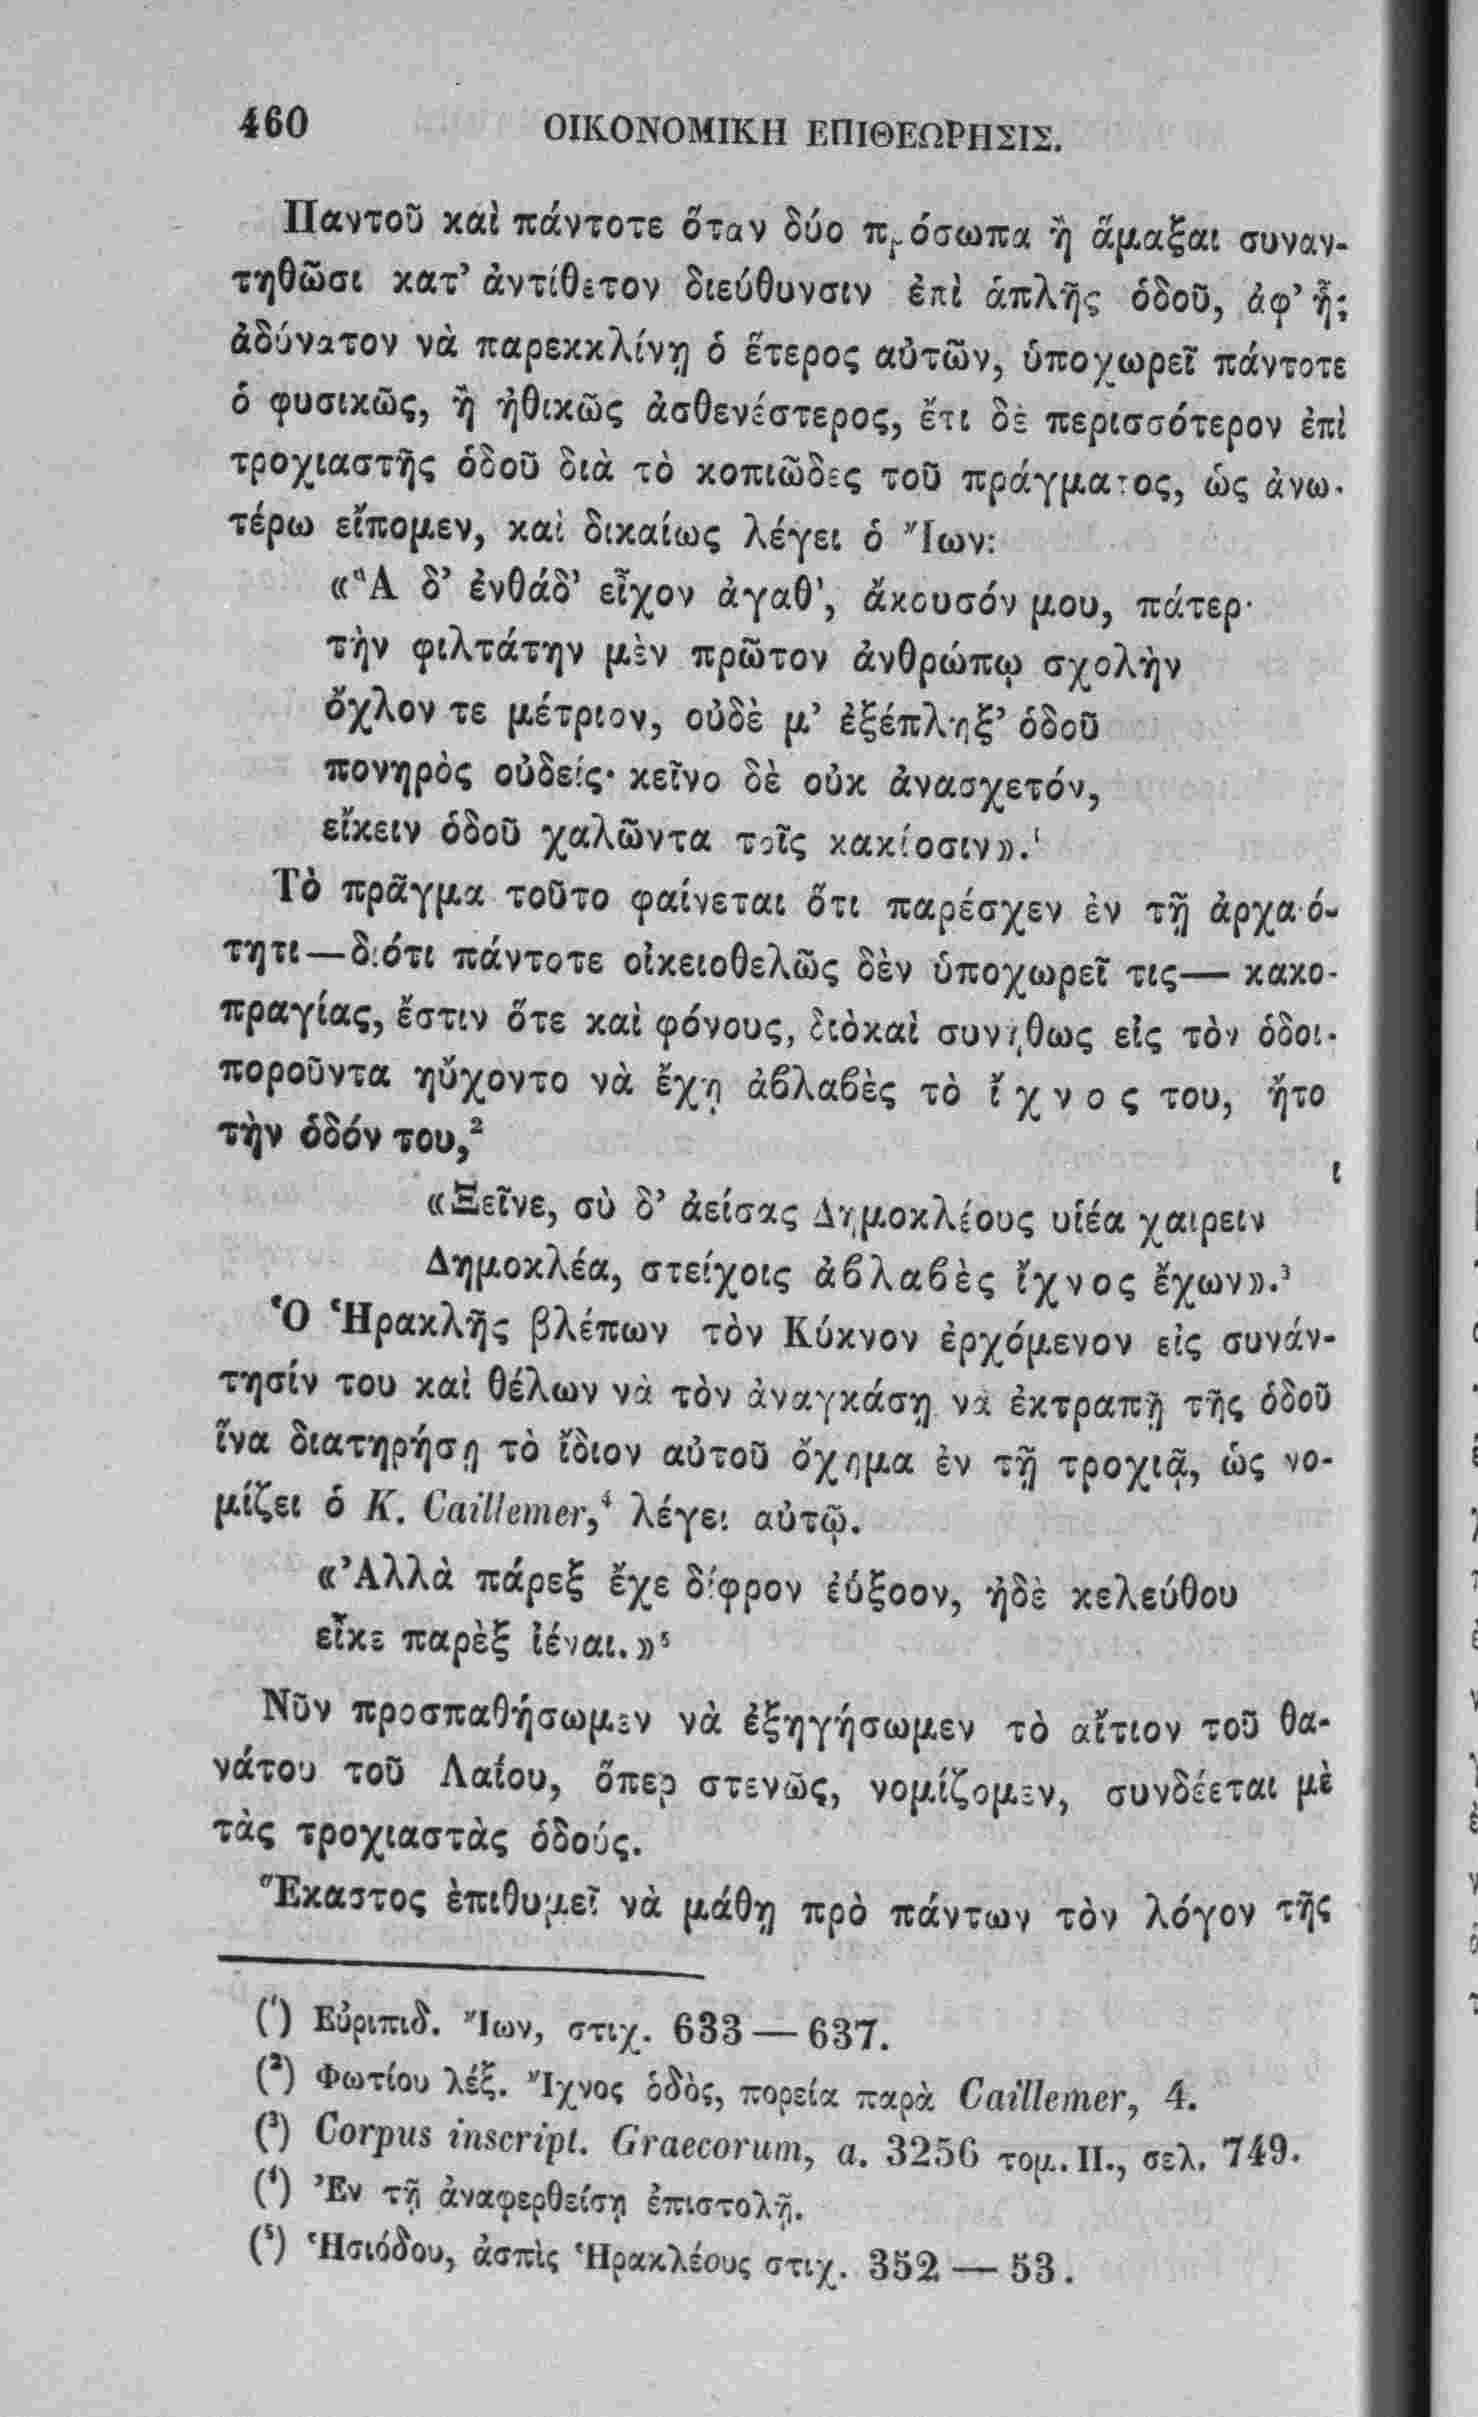 460 ΟΙΚΟΝΟΜΙΚΗ ΕΠΙΘΕΩΡΗΣΙΣ.
Παντοῦ καὶ πάντοτε ὅταν δύο πρόσωπα ἢ ἅμαξαι συναν-
τηθῶσι κατ’ ἀντίθετον διεύθυνσιν ἐπὶ ἁπλῆς ὁδοῦ, ἀφ’ ἧς
ἀδύνατον νὰ παρεκκλίνῃ ὁ ἕτερος αὐτῶν, ὑποχωρεῖ πάντοτε
ὁ φυσικῶς, ἢ ἠθικῶς ἀσθενέστερος, ἔτι δὲ περισσότερον ἐπὶ
τροχιαστῆς ὁδοῦ διὰ τὸ κοπιῶδες τοῦ πράγματος, ὡς ἀνω-
τέρω εἴπομεν, καὶ δικαίως λέγει ὁ Ἴων:
«Ἃ δ’ ἐνθάδ’ εἶχον ἀγαθ’, ἄκουσόν μου, πάτερ·
τὴν φιλτάτην μὲν πρῶτον ἀνθρώπῳ σχολὴν
ὄχλον τε μέτριον, οὐδὲ μ’ ἐξέπληξ’ ὁδοῦ
πονηρὸς οὐδείς· κεῖνο δὲ οὐκ ἀνασχετόν,
εἴκειν ὁδοῦ χαλῶντα τοῖς κακίοσιν».¹
Τὸ πρᾶγμα τοῦτο φαίνεται ὅτι παρέσχεν ἐν τῇ ἀρχαιό-
τητι—διότι πάντοτε οἰκειοθελῶς δὲν ὑποχωρεῖ τις— κακο-
πραγίας, ἔστιν ὅτε καὶ φόνους, διὸκαὶ συνήθως εἰς τὸν ὁδοι-
ποροῦντα ηὔχοντο νὰ ἔχῃ ἀβλαβὲς τὸ ἴ χ ν ο ς του, ἤτο
τὴν ὁδόν του,² ι
«Ξεῖνε, σὺ δ’ ἀείσας Δημοκλέους υἱέα χαιρειν
Δημοκλέα, στείχοις ἀβλαβὲς ἴχνος ἔχων».³
Ὁ Ἡρακλῆς βλέπων τὸν Κύκνον ἐρχόμενον εἰς συνάν-
τησίν του καὶ θέλων νὰ τὸν ἀναγκάσῃ νὰ ἐκτραπῇ τῆς ὁδοῦ
ἵνα διατηρήσῃ τὸ ἴδιον αὐτοῦ ὄχημα ἐν τῇ τροχιᾷ, ὡς νο-
μίζει ὁ K. Caillemer,⁴ λέγει αὐτῷ.
«Ἀλλὰ πάρεξ ἔχε δίφρον ἐύξοον, ἠδὲ κελεύθου
εἶκε παρὲξ ἰέναι.»⁵
Νῦν προσπαθήσωμεν νὰ ἐξηγήσωμεν τὸ αἴτιον τοῦ θα-
νάτου τοῦ Λαΐου, ὅπερ στενῶς, νομίζομεν, συνδέεται μὲ
τὰς τροχιαστὰς ὁδούς.
Ἕκαστος ἐπιθυμεῖ νὰ μάθῃ πρὸ πάντων τὸν λόγον τῆς
(¹) Εὐριπιδ. Ἴων, στιχ. 633 — 637.
(²) Φωτίου λέξ. Ἴχνος ὁδὸς, πορεία παρὰ Caillemer, 4.
(³) Corpus inscript. Graecorum, a. 3256 τομ. II., σελ. 749.
(⁴) Ἐν τῇ ἀναφερθείσῃ ἐπιστολῇ.
(⁵) Ἡσιόδου, ἀσπὶς Ἡρακλέους στιχ. 352 — 53.